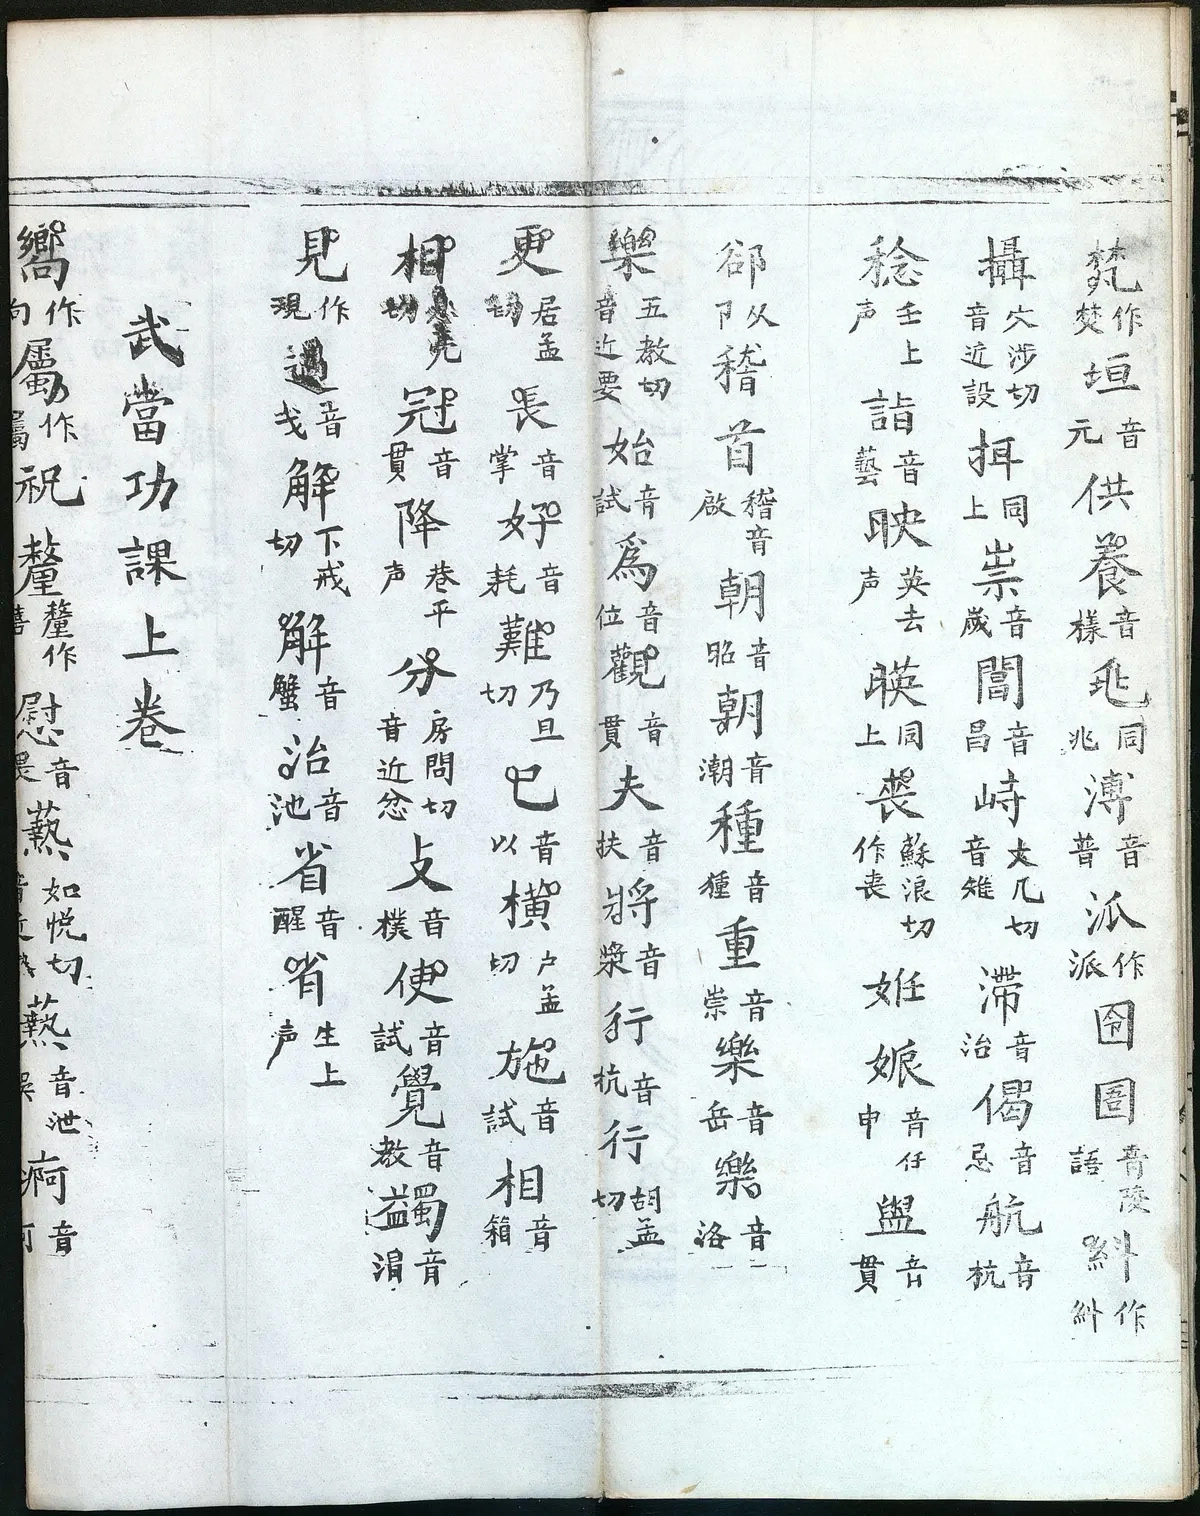 梵作焚垣音元供養音樣兆同兆溥音普泒作派囹圄音陵語紏作糾
攝穴涉切音近設挕同上祟音歲閶音昌峙丈几切音雉滯音治偈音忌航音杭
稔壬上声詣音藝映英去声暎同上䘮蘇浪切作喪妊娠音任申盥音貫
郤从卩稽首稽音啟朝音昭朝音潮種音種重音崇樂音岳樂音洛
樂五教切音近要始音試為音位觀音貫夫音扶將音漿行音杭行胡孟切
更居孟切長音掌好音耗難乃旦切已音以橫户孟切施音試相音箱
相切冠音貫降巷平声分房問切音近忿攴音樸使音試覺音教蠲音涓
見作現過音戈解下戒切解音蟹治音池省音醒省生上声
武當功課上卷
嚮作向屬作屬祝釐釐作禧慰音爇如悅切爇音泄痾音